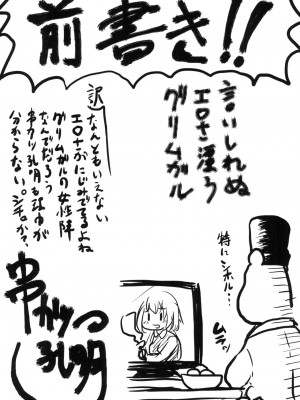 前書き!!
言いしれぬ
エロさ漂う
グリムガル
訳)なんともいえない
エロさがにじみでてるよね
グリムガルの女性陣
なんでだろう
串カツ孔明も理由が
分からない。シホルか?
特にシホル…
ムラッ
串カツ
孔明